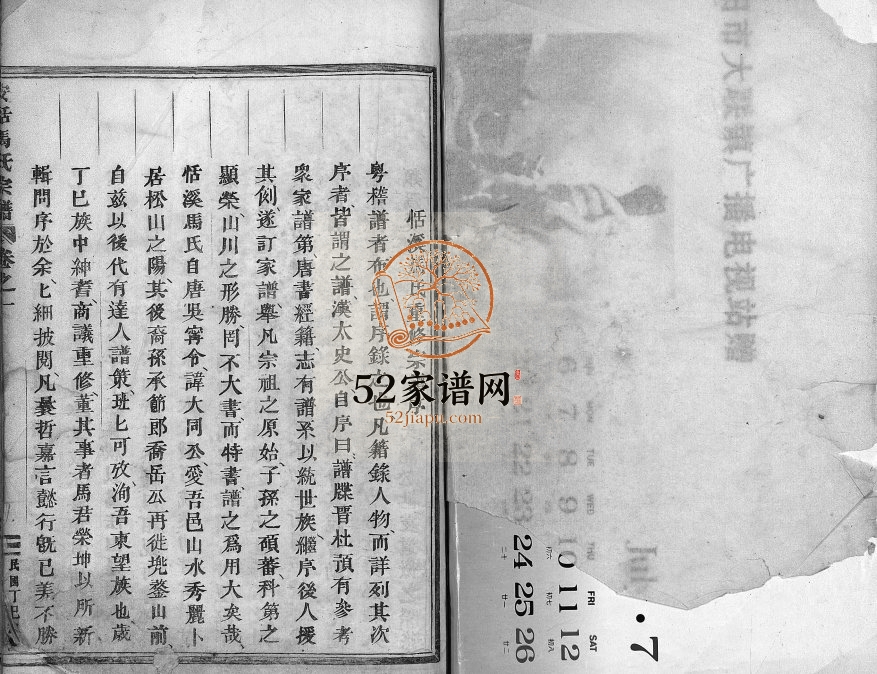 恬溪馬氏重修宗序
粵稽譜者布也謂序錄也凡籍錄人物而詳列其次
序者皆謂之譜漢太史公自序曰譜牒晋杜預有參考
衆家譜第唐書經籍志有譜系以統世族繼序後人援
其例遂訂家譜舉凡宗祖之原始子孫之碩蕃科第之
顯榮山川之形勝罔不大書而特書譜之爲用大矣哉
恬溪馬氏自唐吳寗令諱大同公愛吾邑山水秀麗卜
居松山之陽其後裔孫承節郎喬岳公再徙兠鍪山前
自兹以後代有達人譜策班匕可攷洵吾東望族也歲
丁巳族中紳耆商議重修董其事者馬君榮坤以所新
輯問序於余匕細披閱凡曩哲嘉言懿行旣已美不勝
馬氏宗譜 卷之一
民國丁巳
52家谱网
52jiapu.com
市大联第广播电视站赠
7
Jul
MON TUE WED THU FRI SAT
6 7 8 9 10 11 12
21 22 23 24 25 26